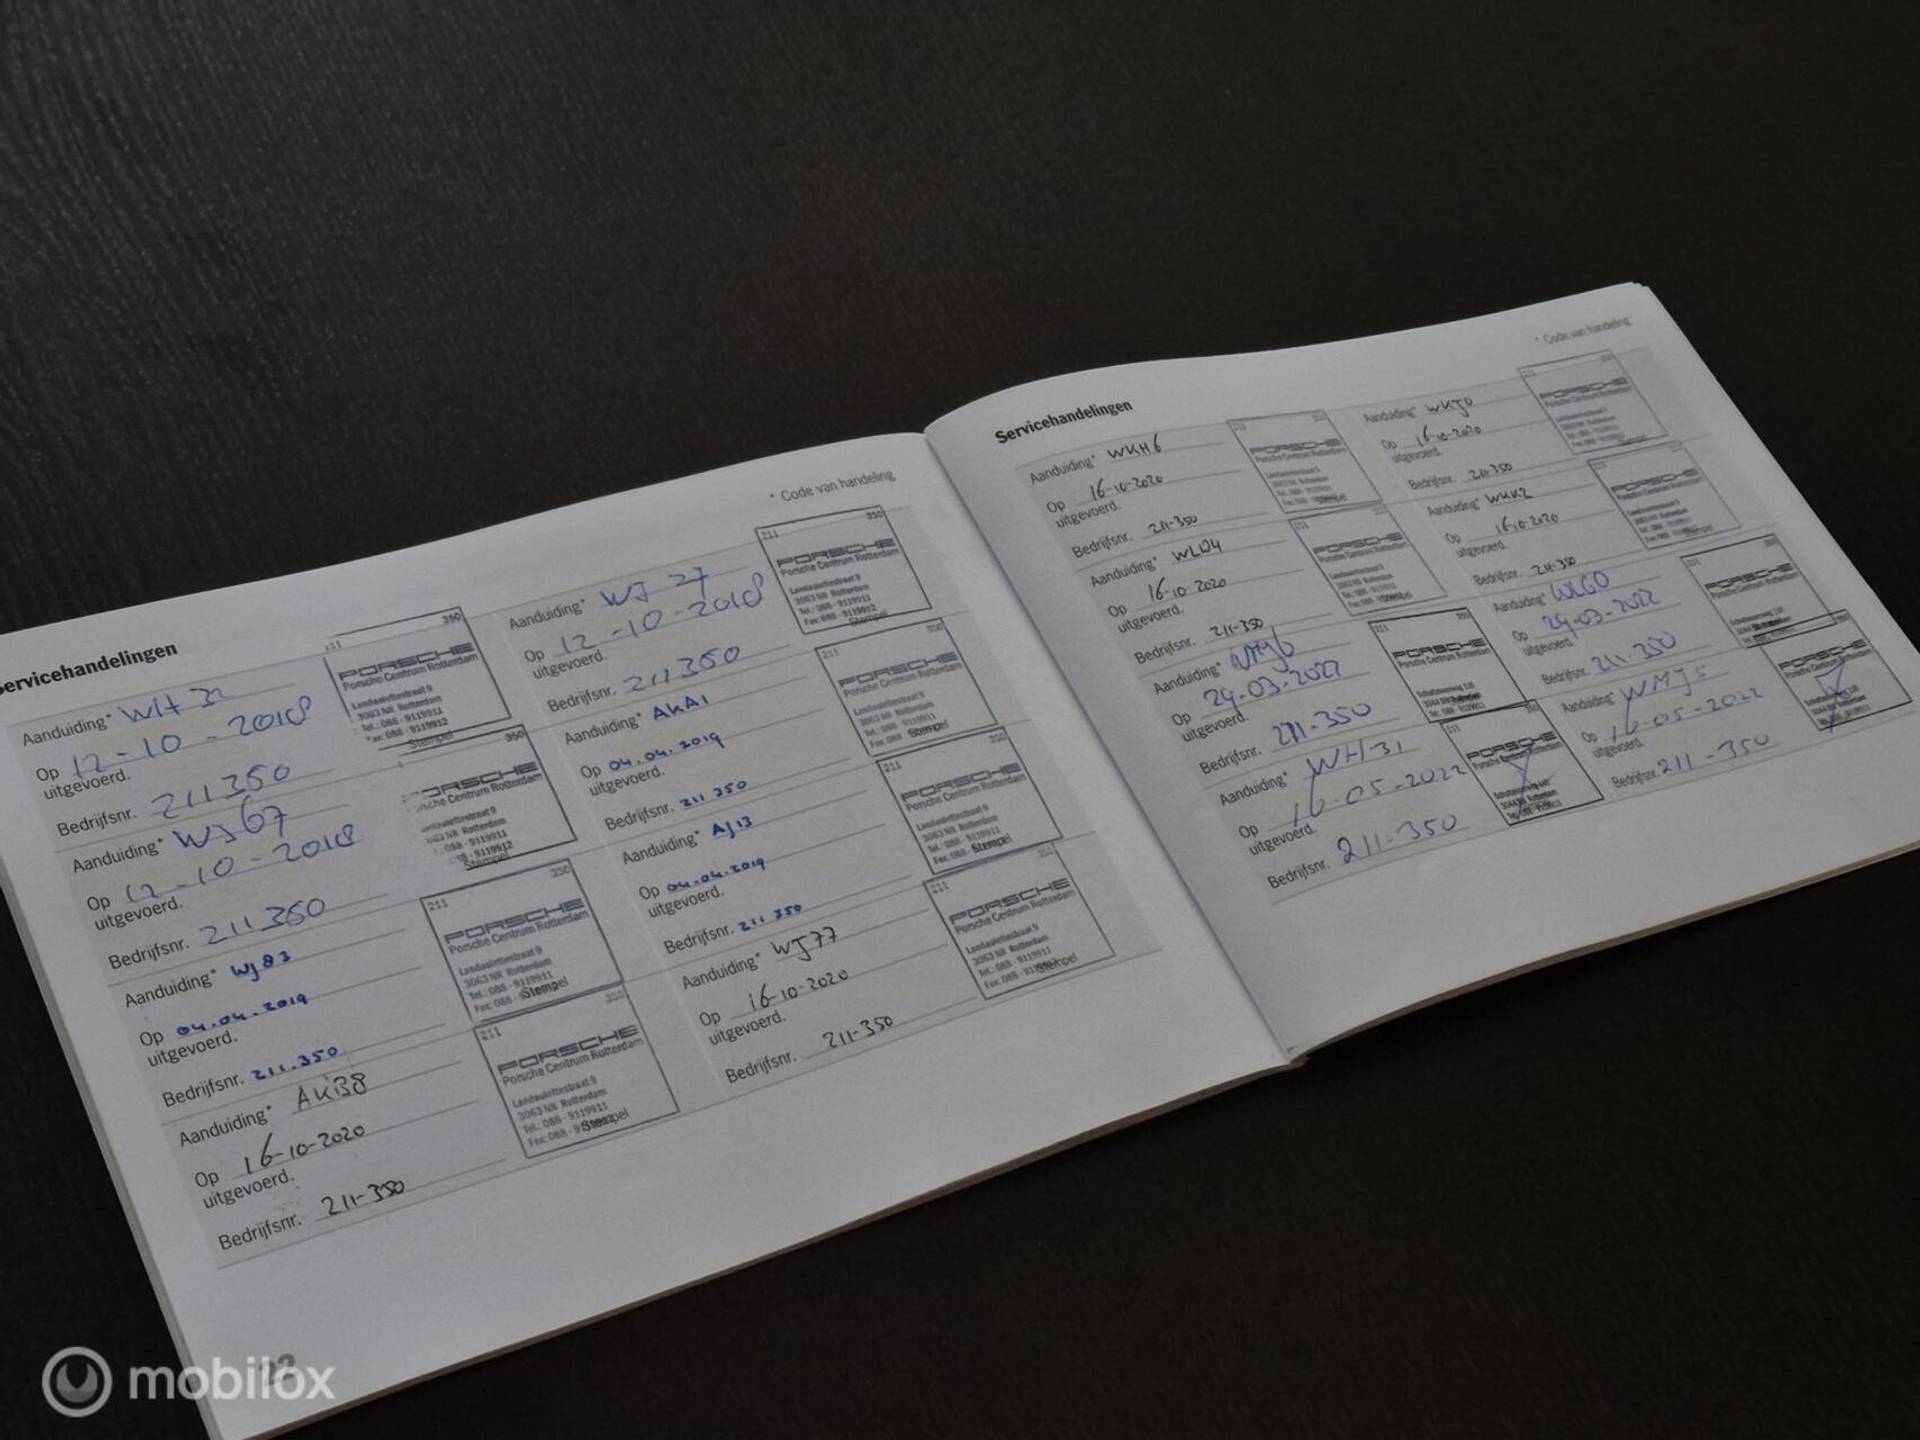 Servicehandelingen
* Code van handeling
Aanduiding*
Op 12-10-2018
uitgevoerd.
Bedrijfsnr. 211350
211 350
PORSCHE
Porsche Centrum Rotterdam
Landaulettestraat 9
3063 NR Rotterdam
Tel.: 088 - 9119911
Fax: 088 - 9119912
Stempel
Aanduiding* WJ 67
Op 12-10-2018
uitgevoerd.
Bedrijfsnr. 211350
350
PORSCHE
Porsche Centrum Rotterdam
Landaulettestraat 9
3063 NR Rotterdam
088 - 9119911
088 - 9119912
Stempel
Aanduiding* WJ83
Op 04.04.2019
uitgevoerd.
Bedrijfsnr. 211.350
211 350
PORSCHE
Porsche Centrum Rotterdam
Landaulettestraat 9
3063 NR Rotterdam
Tel.: 088 - 9119911
Fax: 088 -
Stempel
Aanduiding* AKB8
Op 16-10-2020
uitgevoerd.
Bedrijfsnr. 211-350
211 350
PORSCHE
Porsche Centrum Rotterdam
Landaulettestraat 9
3063 NR Rotterdam
Tel.: 088 - 9119911
Fax: 088 -
Stempel
Aanduiding* WJ 27
Op 12-10-2018
uitgevoerd.
Bedrijfsnr. 211350
211 350
PORSCHE
Porsche Centrum Rotterdam
Landaulettestraat 9
3063 NR Rotterdam
Tel.: 088 - 9119911
Fax: 088 - 9119912
Stempel
Aanduiding* AKA1
Op 04.04.2019
uitgevoerd.
Bedrijfsnr. 211 350
211 350
PORSCHE
Porsche Centrum Rotterdam
Landaulettestraat 9
3063 NR Rotterdam
Tel.: 088 - 9119911
Fax: 088 -
Stempel
Aanduiding* AJ13
Op 04.04.2019
uitgevoerd.
Bedrijfsnr. 211 350
211 350
PORSCHE
Porsche Centrum Rotterdam
Landaulettestraat 9
3063 NR Rotterdam
Tel.: 088 - 9119911
Fax: 088 -
Stempel
Aanduiding* WJ77
Op 16-10-2020
uitgevoerd.
Bedrijfsnr. 211-350
211 350
PORSCHE
Porsche Centrum Rotterdam
Landaulettestraat 9
3063 NR Rotterdam
Tel.: 088 - 9119911
Fax: 088 -
Stempel
22
Servicehandelingen
* Code van handeling
Aanduiding* WKH6
Op 16-10-2020
uitgevoerd.
Bedrijfsnr. 211-350
PORSCHE
Porsche Centrum Rotterdam
Stempel
Aanduiding* WLD4
Op 16-10-2020
uitgevoerd.
Bedrijfsnr. 211-350
PORSCHE
Porsche Centrum Rotterdam
Stempel
Aanduiding*
Op 29-03-2022
uitgevoerd.
Bedrijfsnr. 211-350
211 350
PORSCHE
Porsche Centrum Rotterdam
Aanduiding* WH31
Op 16-05-2022
uitgevoerd.
Bedrijfsnr. 211-350
211 350
PORSCHE
Porsche Centrum Rotterdam
Aanduiding* WKJ0
Op 16-10-2020
uitgevoerd.
Bedrijfsnr. 211-350
PORSCHE
Porsche Centrum Rotterdam
Aanduiding* WKK2
Op 16-10-2020
uitgevoerd.
Bedrijfsnr. 211-350
PORSCHE
Porsche Centrum Rotterdam
Aanduiding* WLG0
Op 29-03-2022
uitgevoerd.
Bedrijfsnr. 211-350
PORSCHE
Porsche Centrum Rotterdam
Aanduiding* WMJ5
Op 16-05-2022
uitgevoerd.
Bedrijfsnr. 211-350
PORSCHE
Porsche Centrum Rotterdam
mobilox